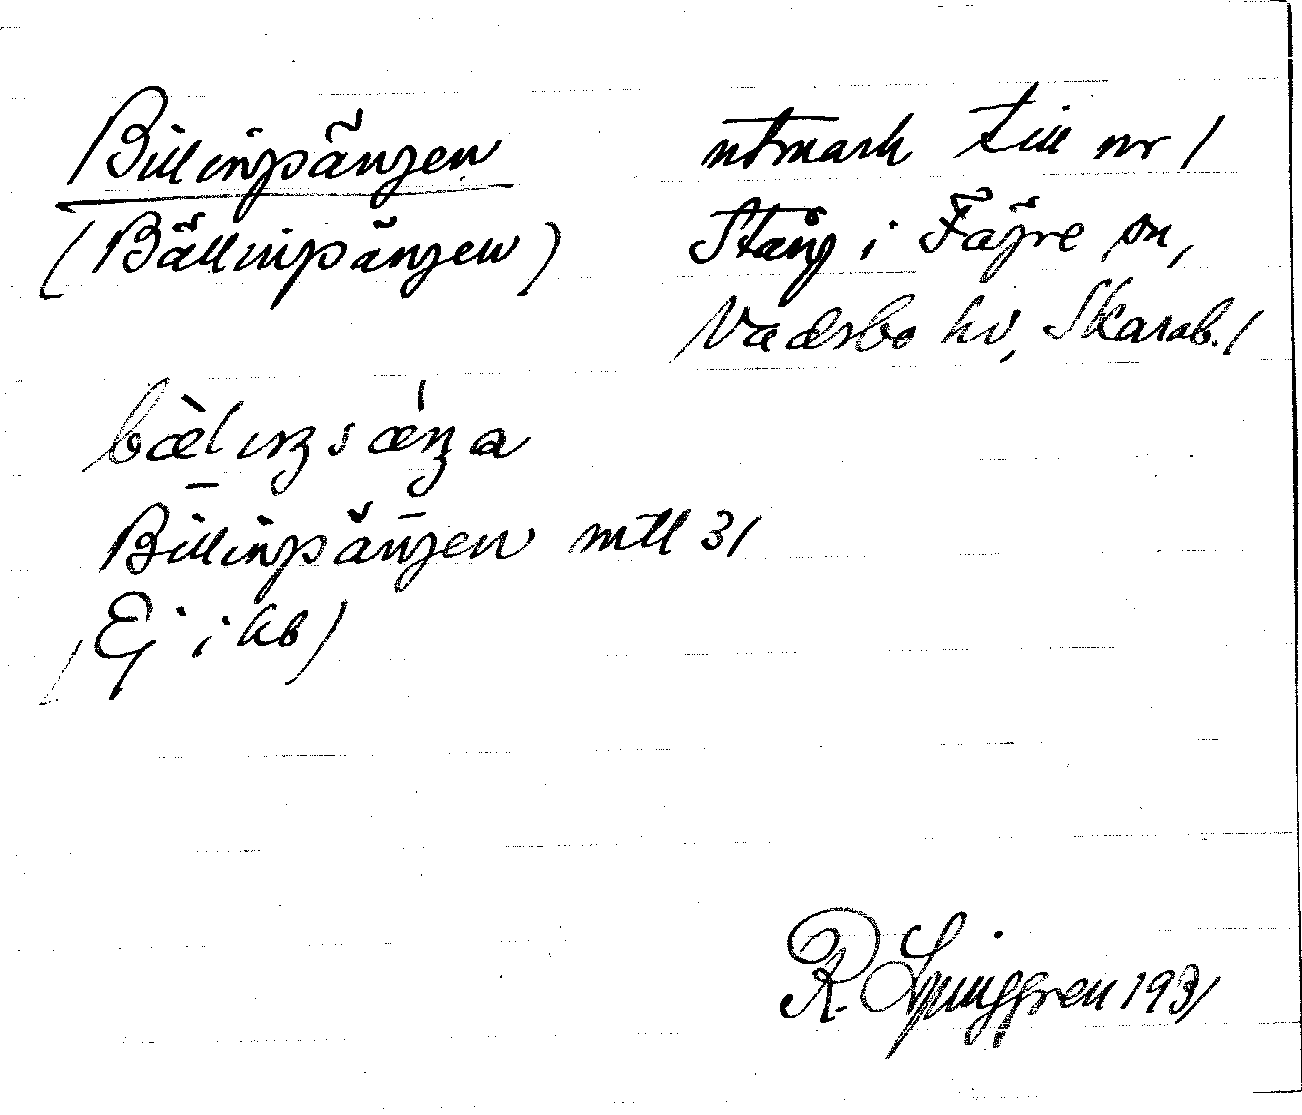 Billingsängen
(Bällingsängen)
utmark till nr 1
Stång i Fägre sn,
Vadsbo hd, Skarab. l
bæ̀lıŋsæ̍ŋa
Billingsängen mtl 31
(Ej i kb)
R. Ljunggren 1931